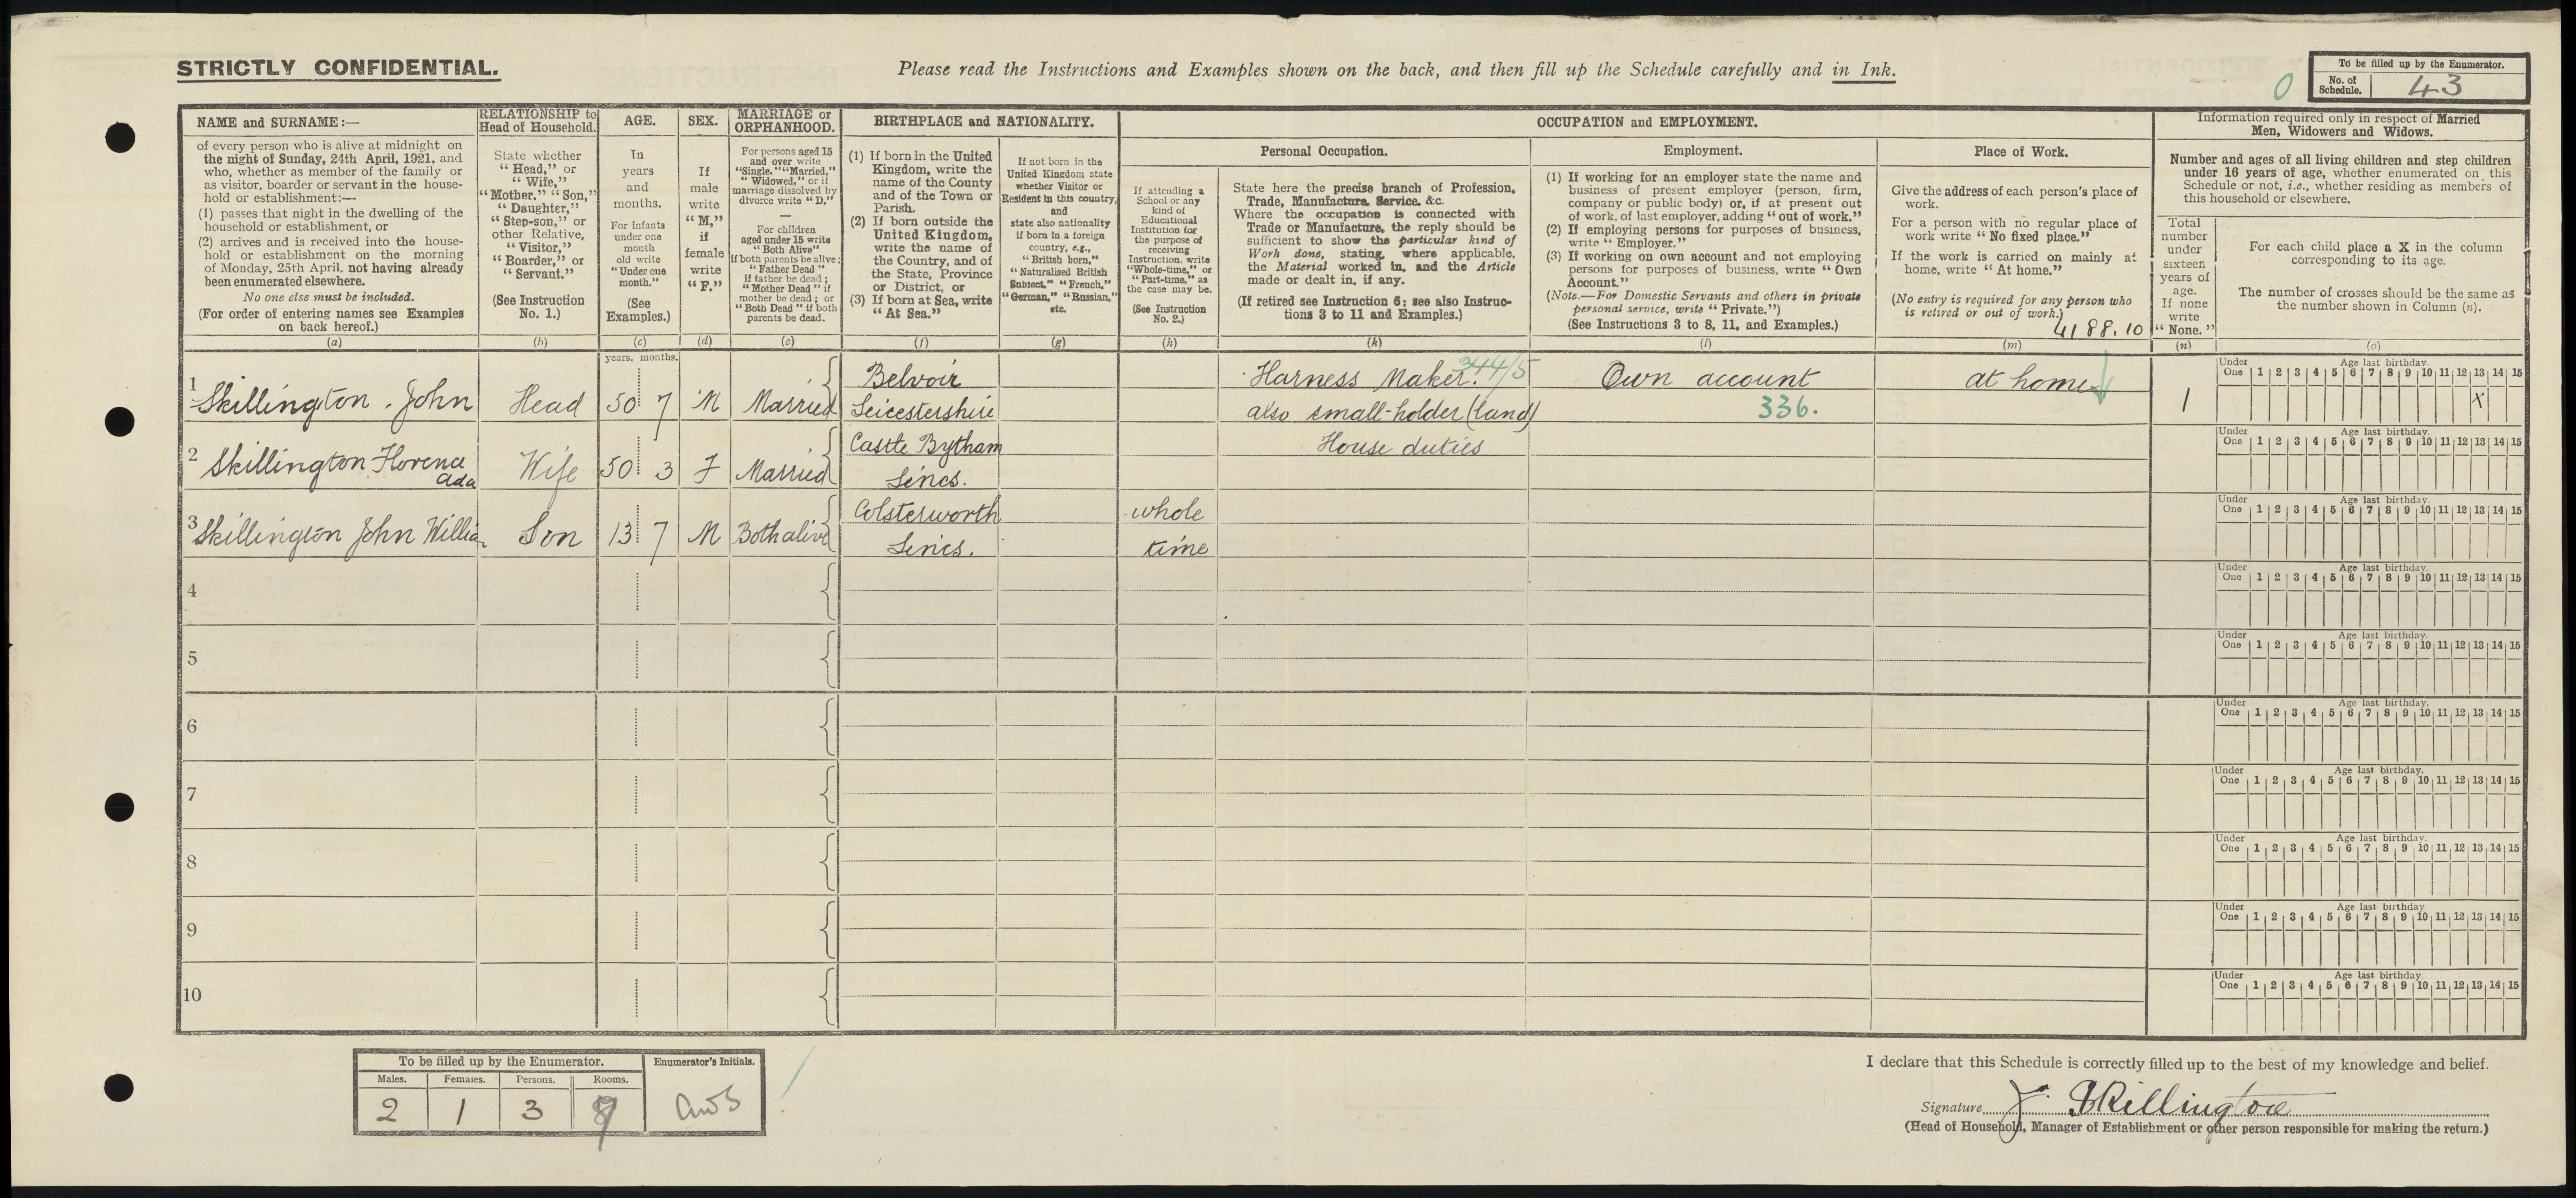 STRICTLY CONFIDENTIAL.
Please read the Instructions and Examples shown on the back, and then fill up the Schedule carefully and in Ink.
0
To be filled up by the Enumerator.
No. of Schedule. 43
NAME and SURNAME:—
of every person who is alive at midnight on
the night of Sunday, 24th April, 1921, and
who, whether as member of the family or
as visitor, boarder or servant in the house-
hold or establishment:—
(1) passes that night in the dwelling of the
household or establishment, or
(2) arrives and is received into the house-
hold or establishment on the morning
of Monday, 25th April, not having already
been enumerated elsewhere.
No one else must be included.
(For order of entering names see Examples
on back hereof.)
(a)
RELATIONSHIP to
Head of Household.
State whether
"Head," or
"Wife,"
"Mother," "Son,"
"Daughter,"
"Step-son," or
other Relative,
"Visitor,"
"Boarder," or
"Servant."
(See Instruction
No. 1.)
(b)
AGE.
In
years
and
months.
For infants
under one
month
old write
"Under one
month."
(See
Examples.)
(c)
SEX.
If
male
write
"M,"
if
female
write
"F."
(d)
MARRIAGE or
ORPHANHOOD.
For persons aged 15
and over write
"Single," "Married,"
"Widowed," or if
marriage dissolved by
divorce write "D."
—
For children
aged under 15 write
"Both Alive"
if both parents be alive;
"Father Dead"
if father be dead;
"Mother Dead" if
mother be dead; or
"Both Dead" if both
parents be dead.
(e)
BIRTHPLACE and NATIONALITY.
(1) If born in the United
Kingdom, write the
name of the County
and of the Town or
Parish.
(2) If born outside the
United Kingdom,
write the name of
the Country, and of
the State, Province
or District, or
(3) If born at Sea, write
"At Sea."
(f)
If not born in the
United Kingdom state
whether Visitor or
Resident in this country,
and
state also nationality
if born in a foreign
country, e.g.,
"British born,"
"Naturalised British
Subject," "French,"
"German," "Russian,"
etc.
(g)
OCCUPATION and EMPLOYMENT.
Personal Occupation.
If attending a
School or any
kind of
Educational
Institution for
the purpose of
receiving
Instruction, write
"Whole-time," or
"Part-time," as
the case may be.
(See Instruction
No. 2.)
(h)
State here the precise branch of Profession,
Trade, Manufacture, Service, &c.
Where the occupation is connected with
Trade or Manufacture, the reply should be
sufficient to show the particular kind of
Work done, stating, where applicable,
the Material worked in, and the Article
made or dealt in, if any.
(If retired see Instruction 6; see also Instruc-
tions 3 to 11 and Examples.)
(k)
Employment.
(1) If working for an employer state the name and
business of present employer (person, firm,
company or public body) or, if at present out
of work, of last employer, adding "out of work."
(2) If employing persons for purposes of business,
write "Employer."
(3) If working on own account and not employing
persons for purposes of business, write "Own
Account."
(Note.—For Domestic Servants and others in private
personal service, write "Private.")
(See Instructions 3 to 8, 11, and Examples.)
(l)
Place of Work.
Give the address of each person's place of
work.
For a person with no regular place of
work write "No fixed place."
If the work is carried on mainly at
home, write "At home."
(No entry is required for any person who
is retired or out of work.)
4188.10
(m)
Information required only in respect of Married
Men, Widowers and Widows.
Number and ages of all living children and step children
under 16 years of age, whether enumerated on this
Schedule or not, i.e., whether residing as members of
this household or elsewhere.
Total
number
under
sixteen
years of
age.
If none
write
"None."
(n)
For each child place a X in the column
corresponding to its age.
The number of crosses should be the same as
the number shown in Column (n).
(o)
years. months.
1 Skillington. John Head 50 7 M Married Belvoir Leicestershire Harness Maker. 344/5 also small-holder (land) Own account 336. at home 1
Under One Age last birthday. 1 2 3 4 5 6 7 8 9 10 11 12 13 14 15
X
2 Skillington Florence Ada Wife 50 3 F Married Castle Bytham Lincs. House duties
Under One Age last birthday. 1 2 3 4 5 6 7 8 9 10 11 12 13 14 15
3 Skillington John Willia Son 13 7 M Both alive Colsterworth Lincs. whole time
Under One Age last birthday. 1 2 3 4 5 6 7 8 9 10 11 12 13 14 15
4
Under One Age last birthday. 1 2 3 4 5 6 7 8 9 10 11 12 13 14 15
5
Under One Age last birthday. 1 2 3 4 5 6 7 8 9 10 11 12 13 14 15
6
Under One Age last birthday. 1 2 3 4 5 6 7 8 9 10 11 12 13 14 15
7
Under One Age last birthday. 1 2 3 4 5 6 7 8 9 10 11 12 13 14 15
8
Under One Age last birthday. 1 2 3 4 5 6 7 8 9 10 11 12 13 14 15
9
Under One Age last birthday. 1 2 3 4 5 6 7 8 9 10 11 12 13 14 15
10
Under One Age last birthday. 1 2 3 4 5 6 7 8 9 10 11 12 13 14 15
To be filled up by the Enumerator.
Males. Females. Persons. Rooms.
2 1 3
Enumerator's Initials.
I declare that this Schedule is correctly filled up to the best of my knowledge and belief.
Signature J. Skillington
(Head of Household, Manager of Establishment or other person responsible for making the return.)